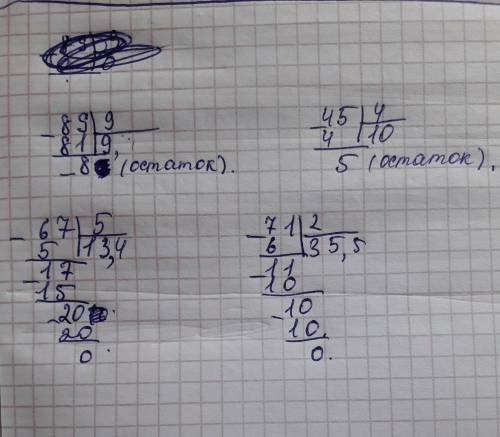 - 89 | 9
81 | 9,
- 8 (остаток).
- 45 | 4
4 | 10
5 (остаток).
- 67 | 5
5 | 13,4
- 17
15
- 20
20
0.
- 71 | 2
6 | 35,5
- 11
10
- 10
10.
0.